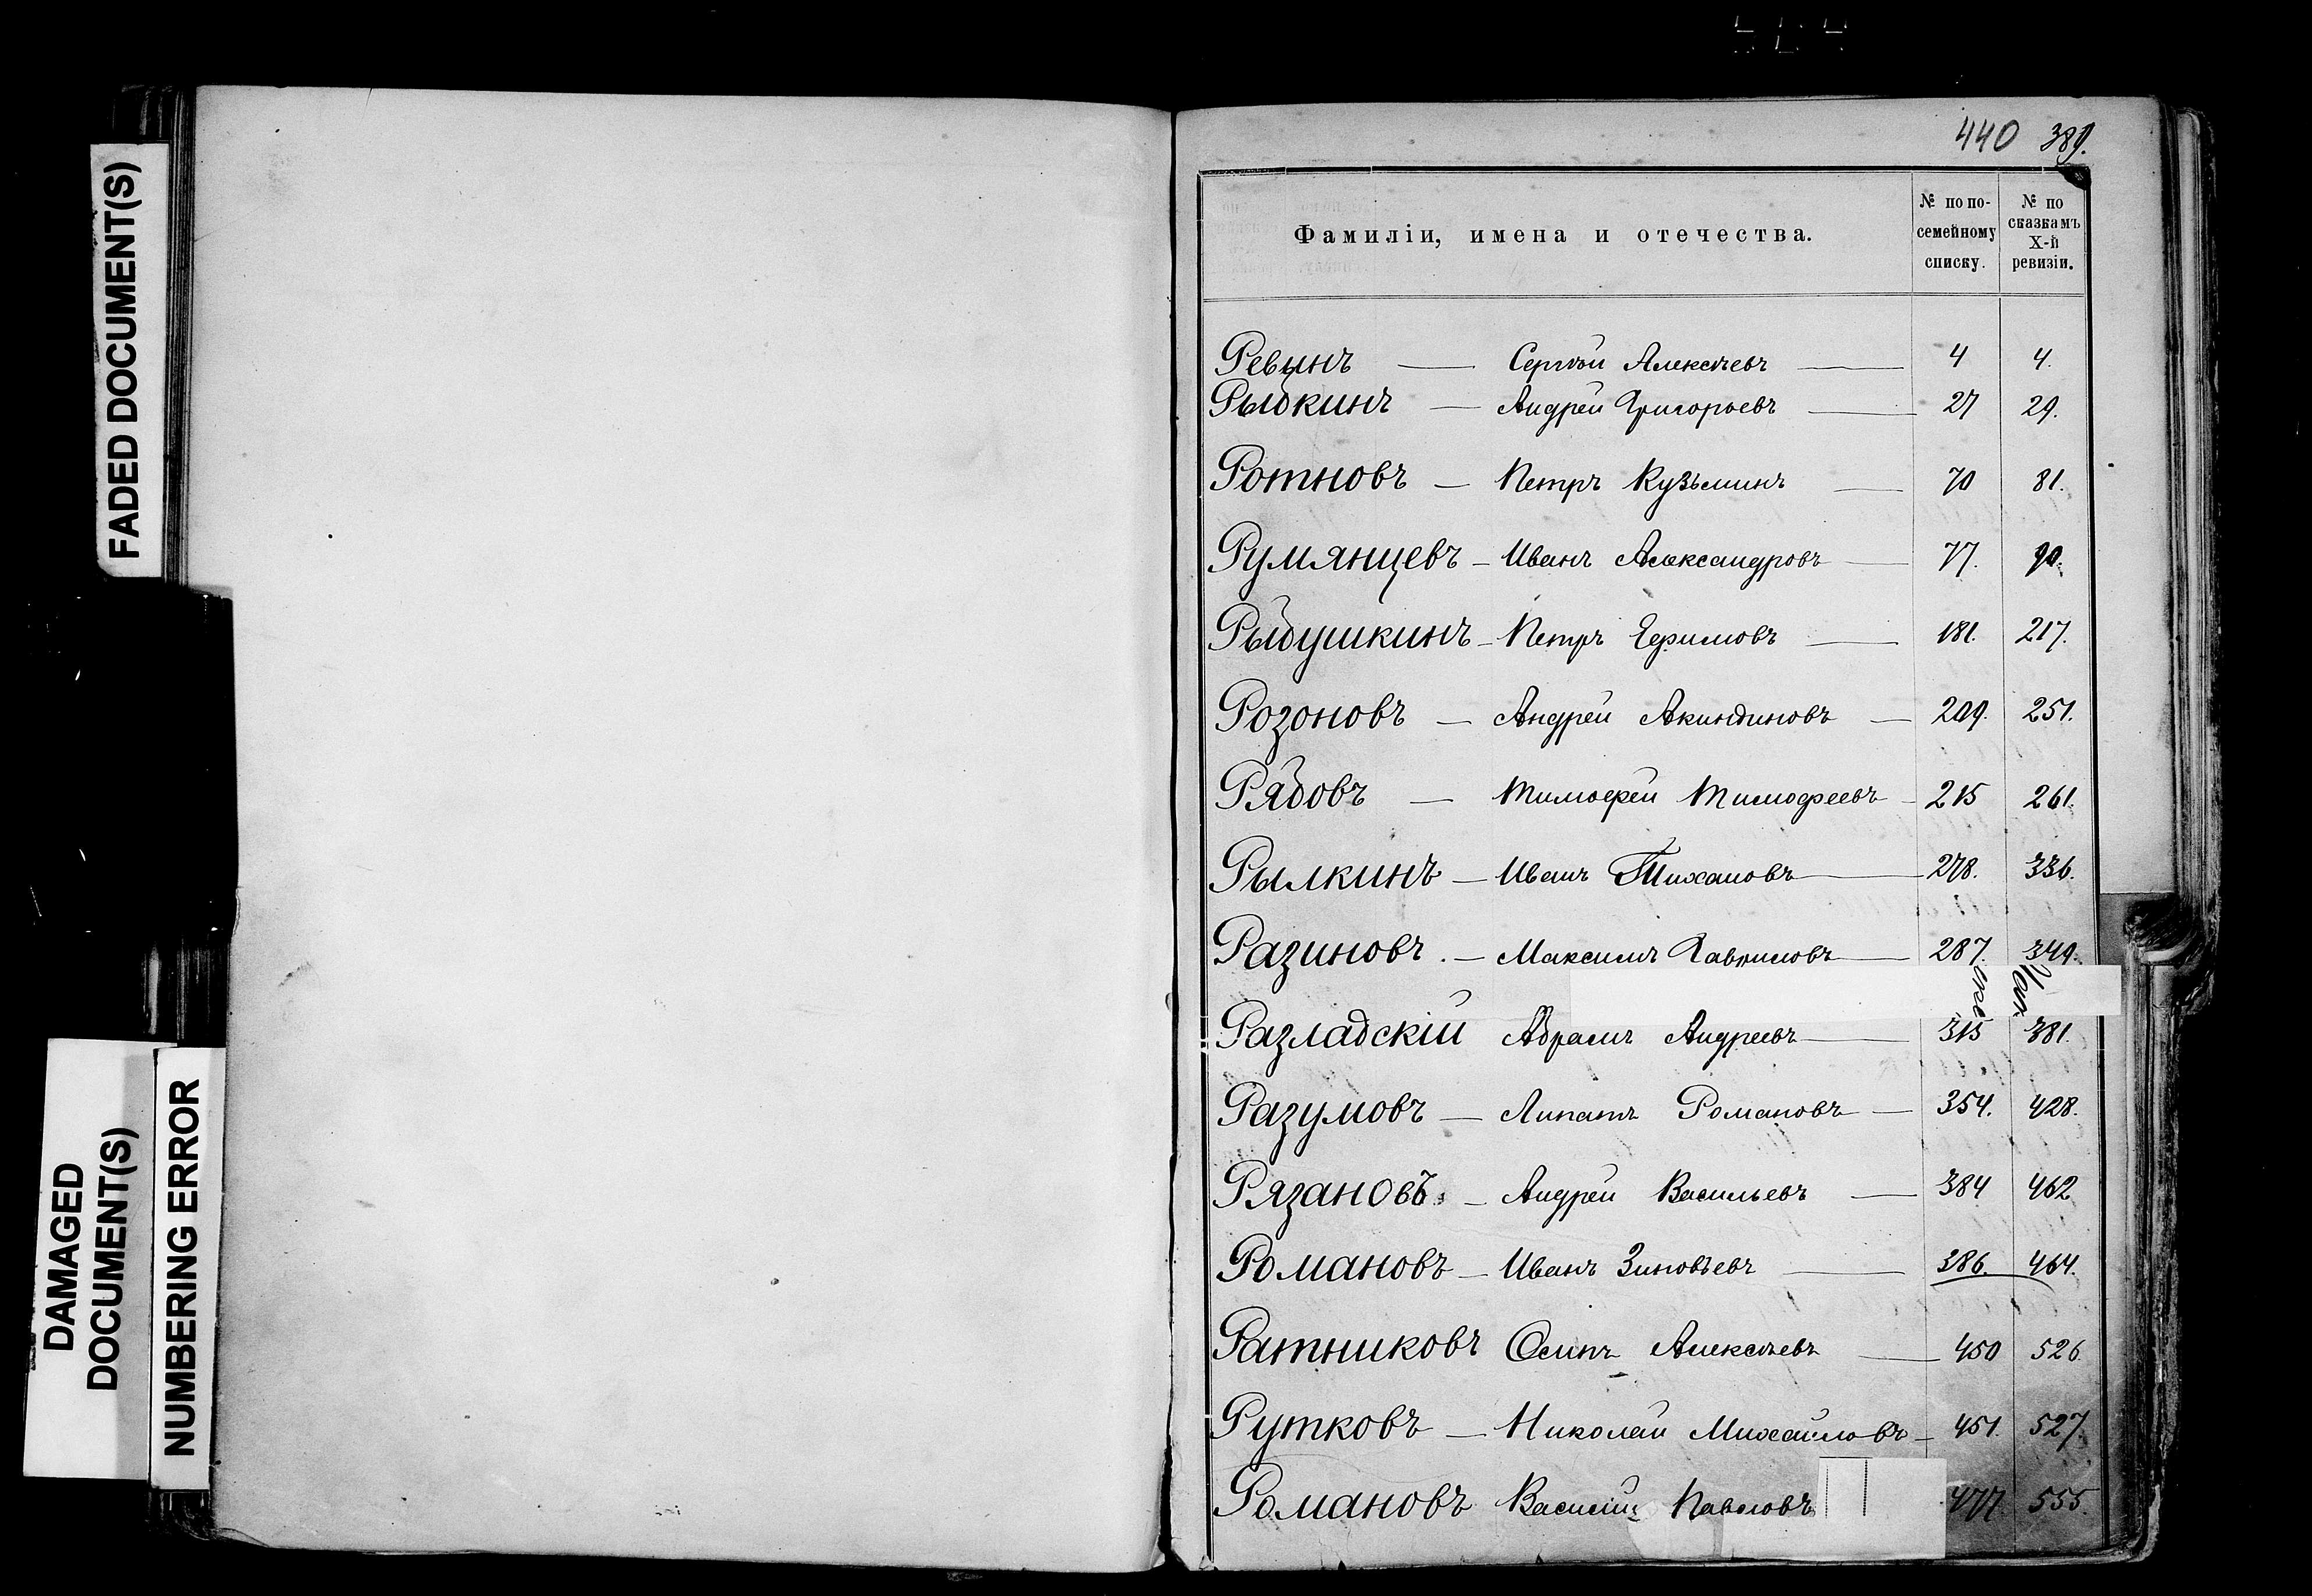 FADED DOCUMENT(S)
DAMAGED
DOCUMENT(S)
NUMBERING ERROR
440 389.
Фамиліи, имена и отечества.
№ по по-
семейному
списку.
№ по
сказкамъ
X-й
ревизіи.
Ревынъ — Сергѣй Алексѣевъ — 4 4.
Рыбкинъ — Андрей Григорьевъ — 27 29.
Ротновъ — Петръ Кузьминъ — 70 81.
Румянцевъ — Иванъ Александровъ — 77. 90.
Рыбушкинъ — Петръ Ефимовъ — 181. 217.
Розоновъ — Андрей Акиндиновъ — 209. 251.
Рябовъ — Тимофей Тимофеевъ — 215 261.
Рылкинъ — Иванъ Тихановъ — 278. 336.
Разиновъ. — Максимъ Гавриловъ — 287. 349.
Разладскій Абрамъ Андреевъ — 315 381.
Разумовъ — Липатъ Романовъ — 354. 428.
Рязановъ — Андрей Васильевъ — 384 462
Романовъ — Иванъ Зиновьевъ — 386. 464.
Ратниковъ Осипъ Алексѣевъ — 450 526.
Рутковъ — Николай Михайловъ — 451. 527.
Романовъ Василій Павловъ 477. 555.